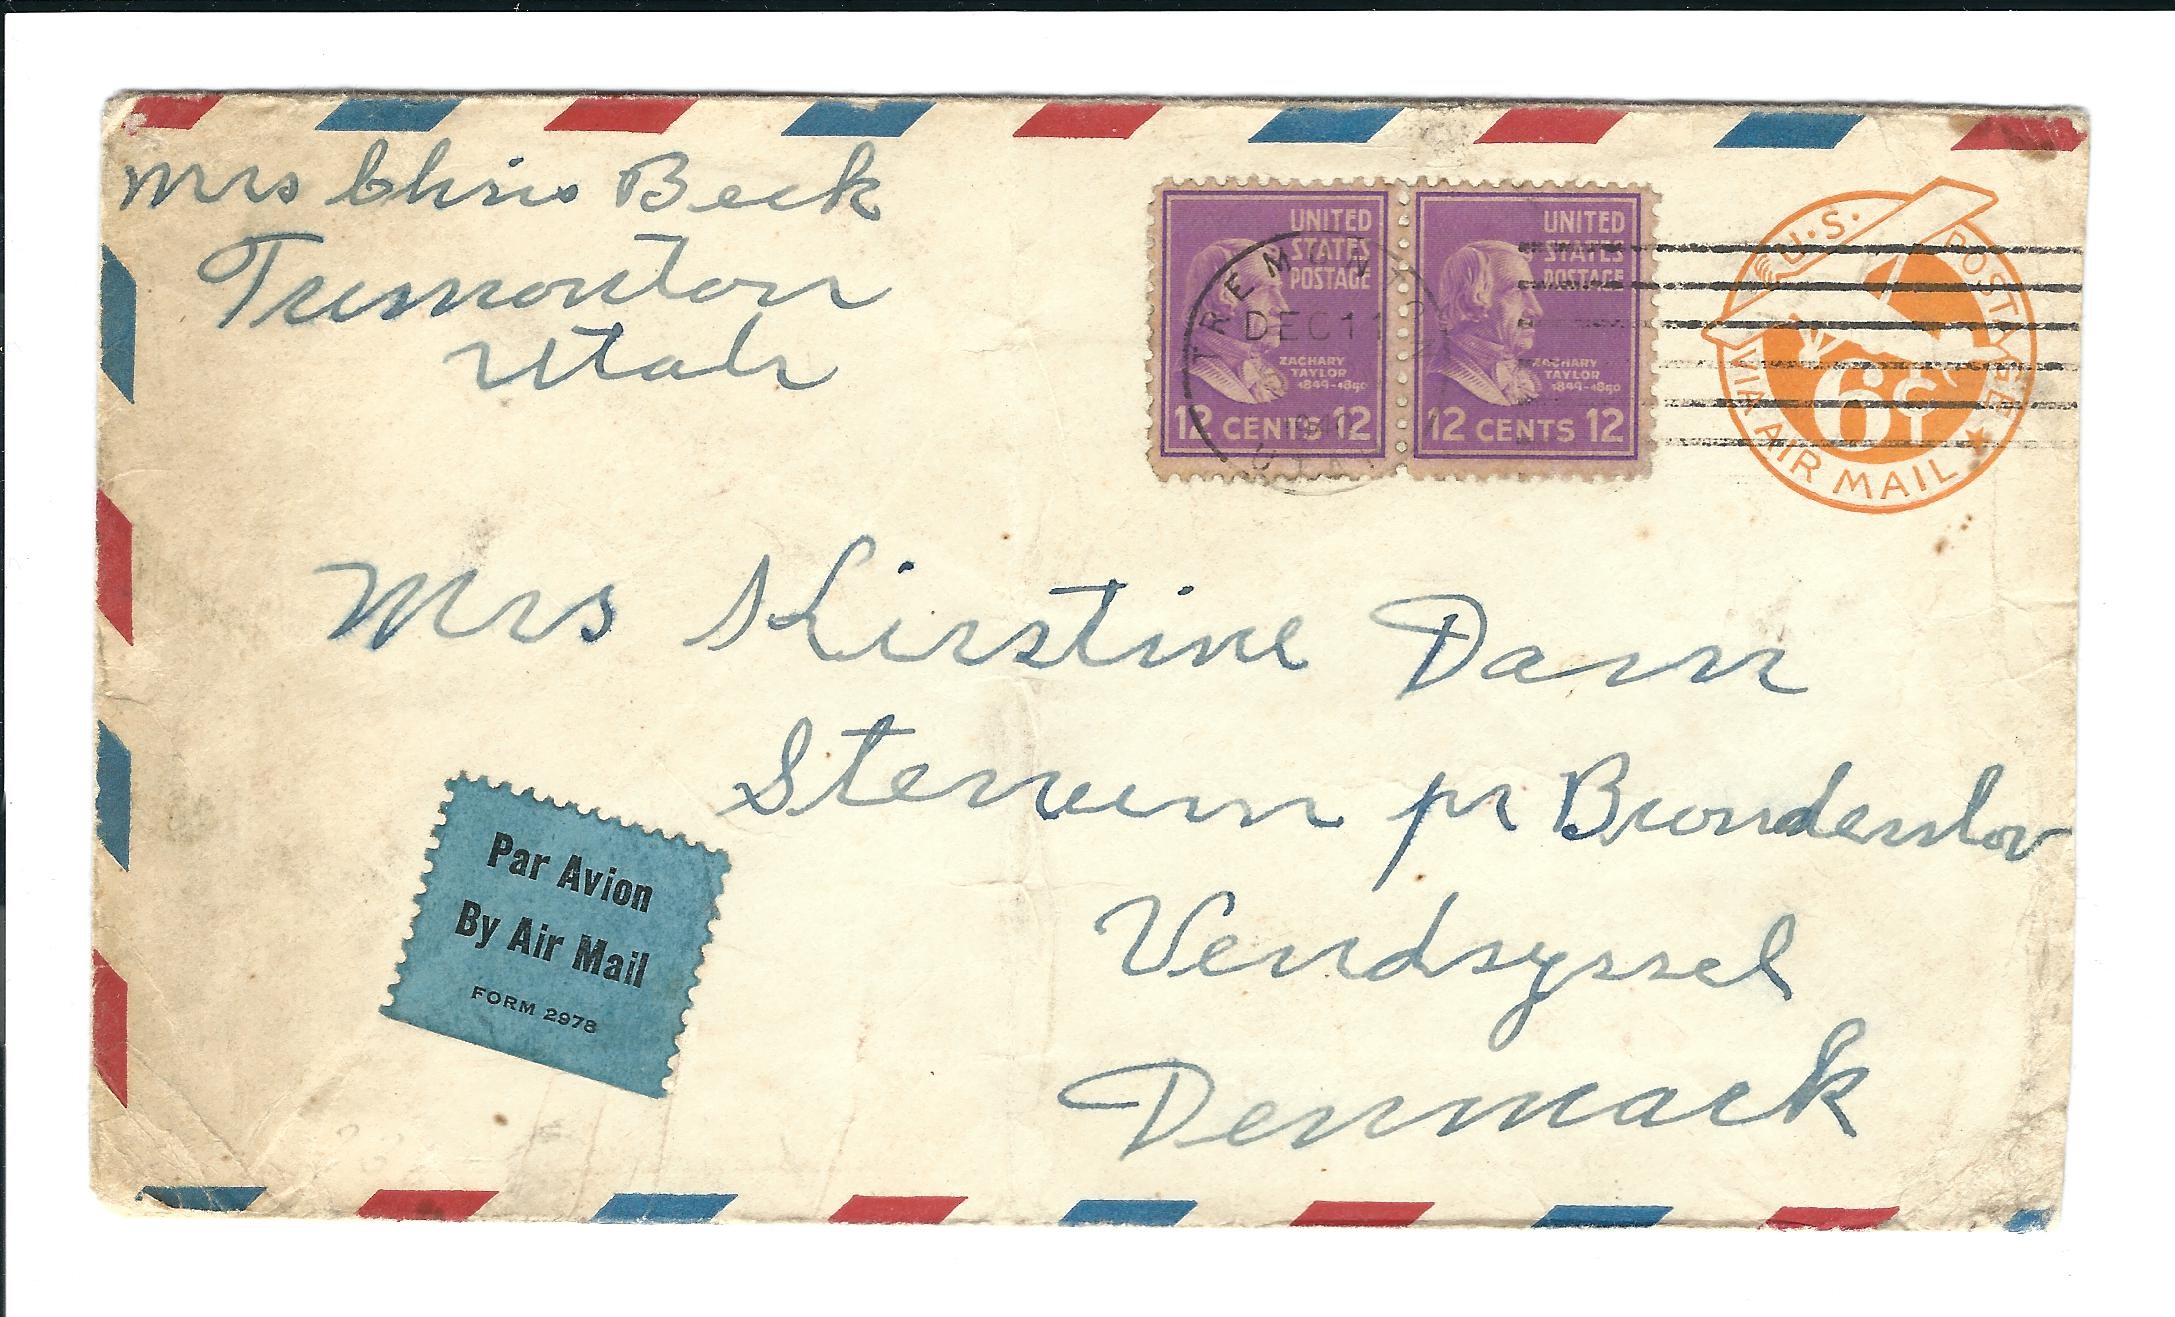 Mrs Chris Beck
Tremonton
Utah
UNITED
STATES
POSTAGE
ZACHARY
TAYLOR
1849-1850
12 CENTS 12
UNITED
STATES
POSTAGE
ZACHARY
TAYLOR
1849-1850
12 CENTS 12
TREMONTON
DEC 11
UTAH
U.S. POSTAGE
6¢
VIA AIR MAIL
Mrs Kirstine Dann
Stenum pr Bronderslov
Vendsyssel
Denmark
Par Avion
By Air Mail
FORM 2978